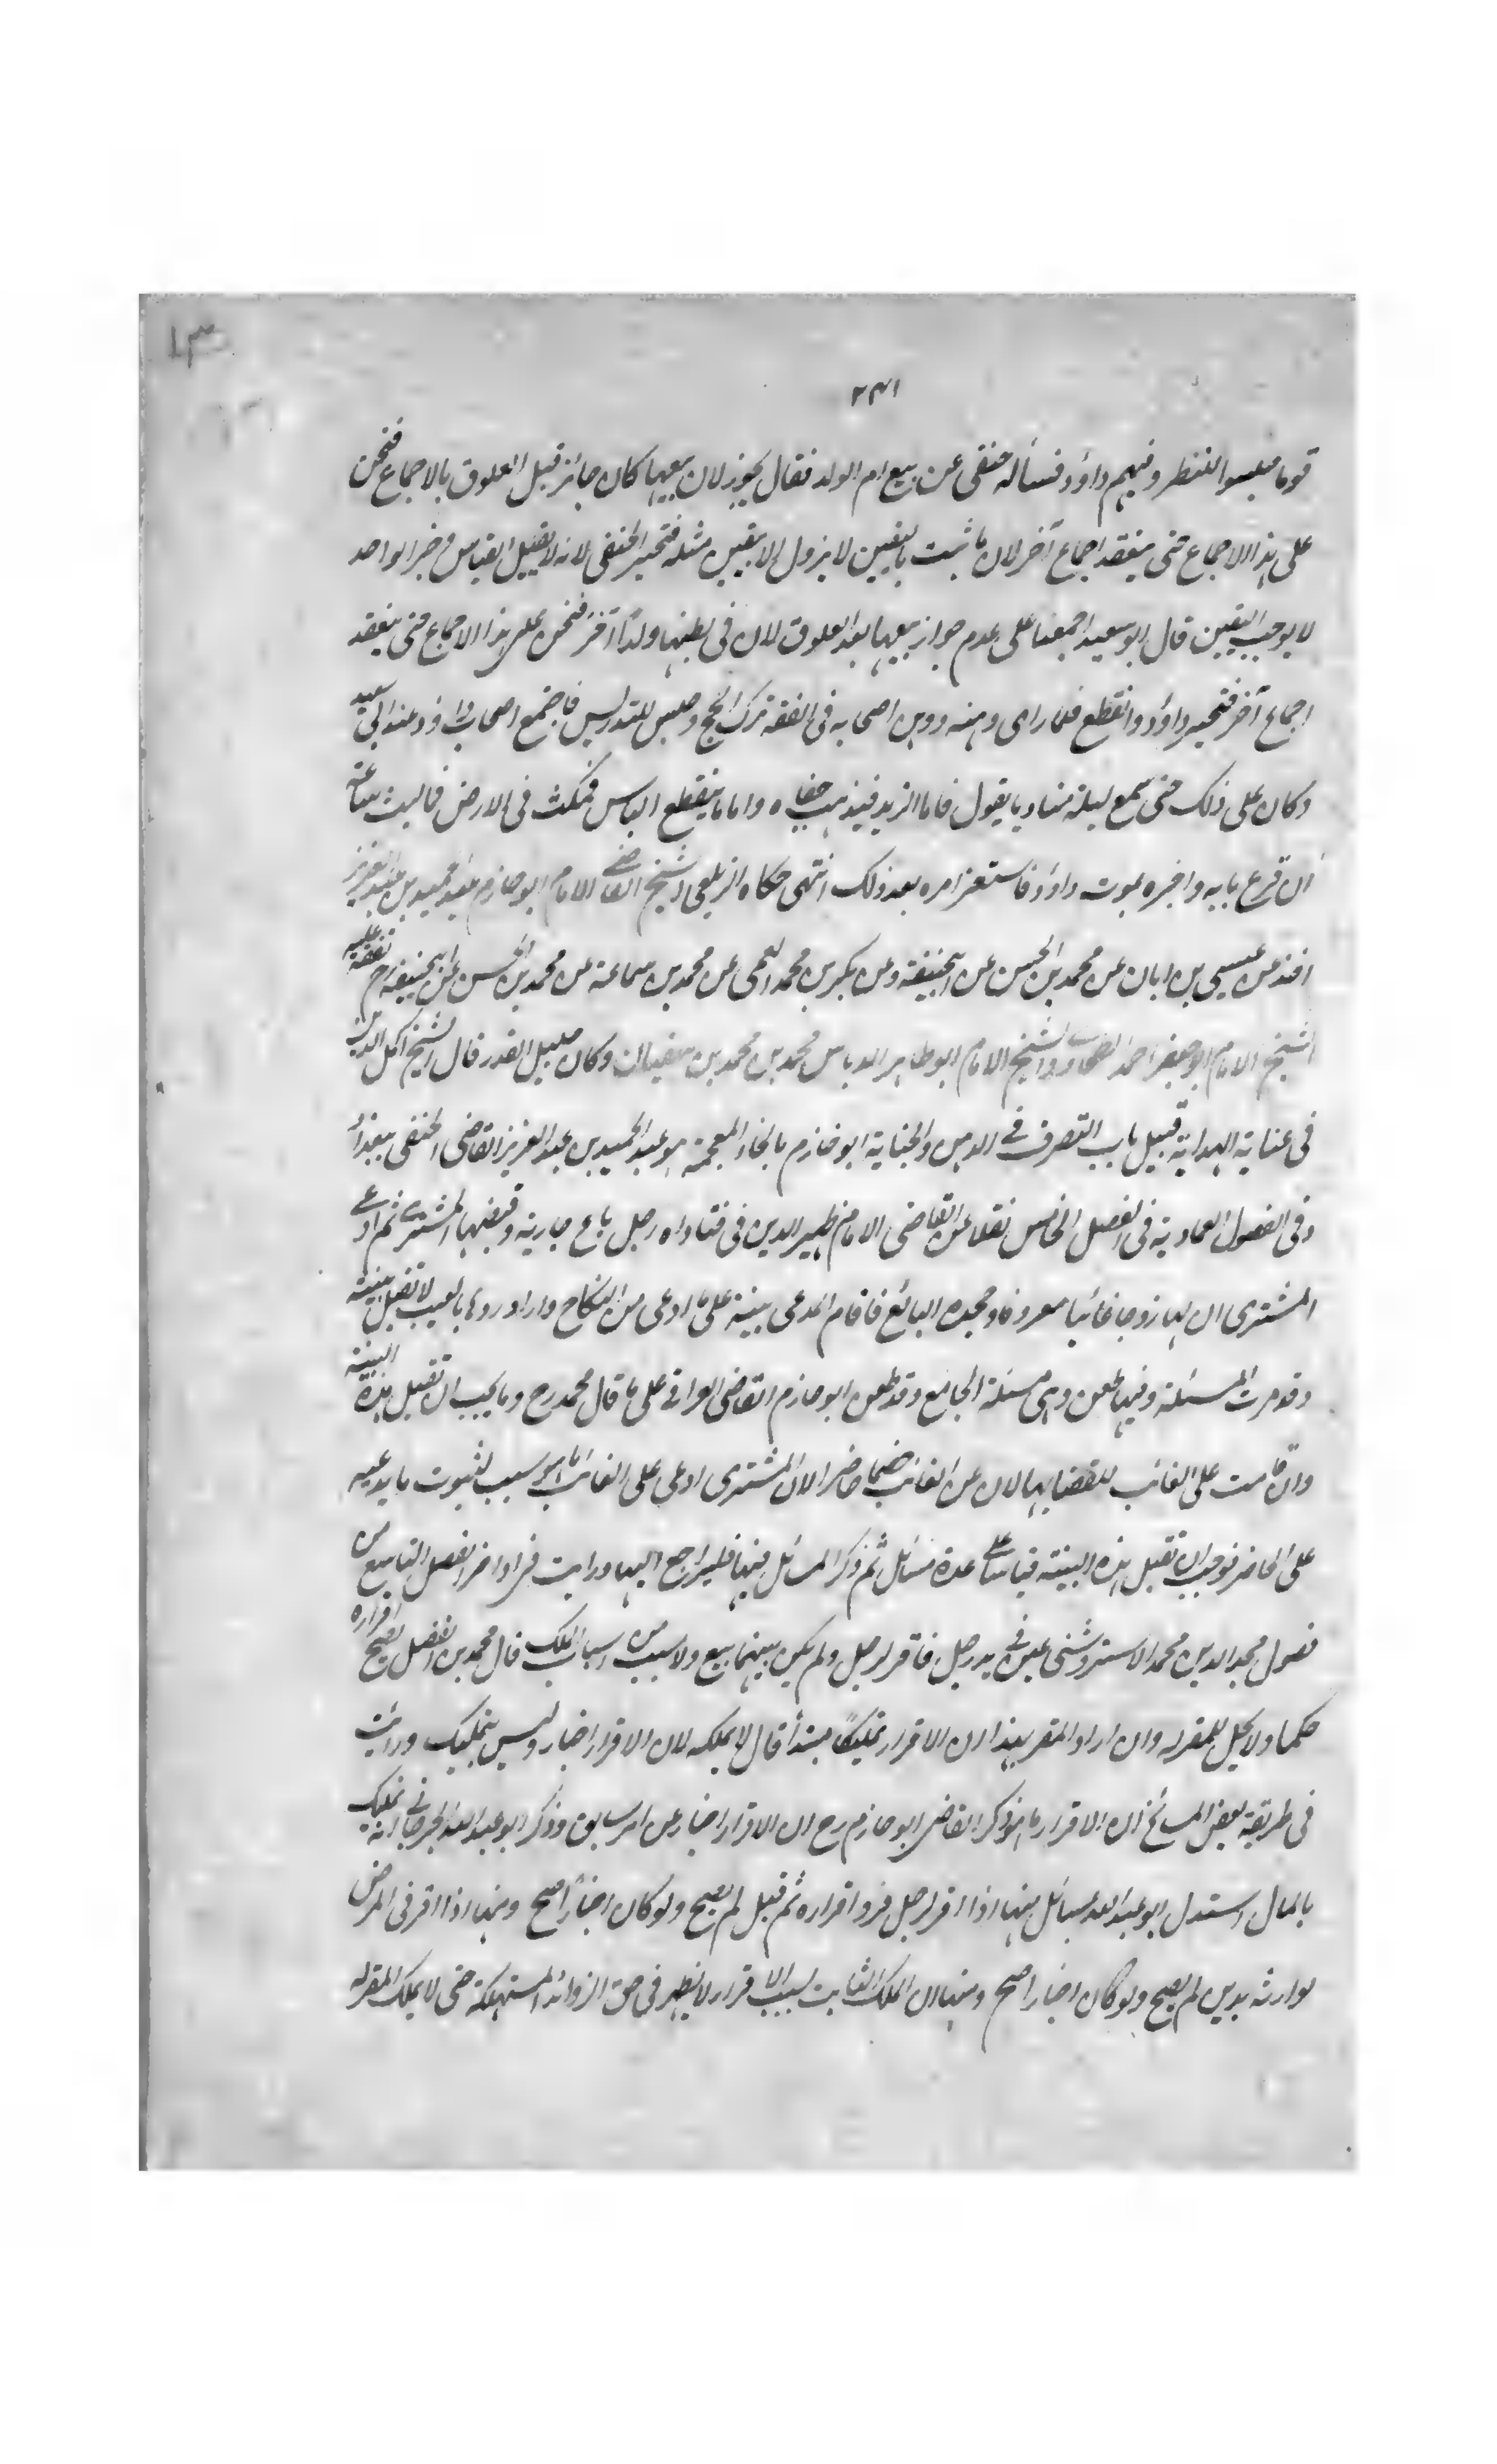 ٢٣١
قوما جلسوا للنظر وفيهم داؤد فسأله حنفى عن بيع ام الولد فقال يجوز لان بيعها كان جائز قبل العلوق بالاجماع فنحن
على هذا الاجماع حتى ينعقد اجماع آخر لان ما ثبت باليقين لا يزول الا بيقين مثله فتحير الحنفى لانه لا يقبل القياس وخبر الواحد
لا يوجب اليقين قال ابو سعيد اجمعنا على عدم جواز بيعها بعد العلوق لان فى بطنها ولدا آخر فنحن على هذا الاجماع حتى ينعقد
اجماع آخر فتحير داؤد وانقطع فلما راى وهنه ووهن اصحابه فى الفقه ترك الحج وجلس للتدريس فاجتمع اصحاب داؤد عند ابى سعيد
وكان على ذلك حتى سمع ليلة مناديا يقول فاما الزبد فيذهب جفاء واما ما ينفع الناس فيمكث فى الارض فما لبث ساعة
ان قرع بابه واخبره بموت داؤد فاستعز امره بعد ذلك انتهى حكاه الزيلعى الشيخ القاضے الامام ابو حازم عبد الحميد بن عبد العزيز
اخذ عن عيسى بن ابان عن محمد بن الحسن عن ابيحنيفة وعن بكر بن محمد العمى عن محمد بن سماعة عن محمد بن الحسن عن ابيحنيفة رح تفقه عليه
الشيخ الامام ابو جعفر احمد الطحاوے والشيخ الامام ابو طاهر الدباس محمد بن محمد بن سفيان وكان جليل القدر قال الشيخ اكمل الدين
فى عناية الهداية قبيل باب التصرف فے الرهن والجناية ابو خازم بالخاء المعجمة هو عبد الحميد بن عبد العزيز القاضى الحنفى ببغداد
وفى الفصول العمادية فى الفصل الخامس نقلا عن القاضى الامام ظهير الدين فى فتاواه رجل باع جارية وقبضها المشترے ثم ادعے
المشترى ان لها زوجا غائبا معروفا وجحده البائع فاقام المدعى بينة على ما ادعى من النكاح واراد ردها بالعيب لا تقبل بينته
وقد مرت المسئلة وفيها طعن وهى مسئلة الجامع وقد طعن ابو حازم القاضى العراقے على ما قال محمد رح وما يجب ان تقبل هذه البينة
وان قامت على الغائب للقضا بها لان عن الغائب خصما حاضرا لان المشترى ادعى على الغائب ما هو سبب لثبوت ما يدعيه
على الحاضر فوجب ان تقبل هذه البينة قياسا علے عدة مسائل ثم ذكر المسائل فيها فليراجع اليها ورايت فى اواخر الفصل التاسع من
فصول مجد الدين محمد الاستروشنى عين فے يد رجل فاقر لرجل ولم يكن بينهما بيع ولا سبب من اسباب الملك قال محمد بن الفضل يصح اقراره
حكما ولا يحل للمقر له وان اراد المقر بهذا ان الاقرار تمليكا مبتدأ قال لا يملكه لان الاقرار اخبار وليس بتمليك ورائيت
فى طريقة بعض المشائخ ان الاقرار ما هو ذكر القاضى ابو حازم رح ان الاقرار اخبار عن امر سابق وذكر ابو عبد الله الجرجانے انه تمليك
بالمال استدل ابو عبد الله بمسائل منها اذا اقر لرجل فرد اقراره ثم قبل لم يصح ولو كان اخبارا صح ومنها اذا اقر فى المرض
لوارثه بدين لم يصح ولو كان اخبارا صح ومنها ان الملك الثابت بسبب الاقرار لا يظهر فى حق الزوائد المستهلكة حتى لا يملك المقر له